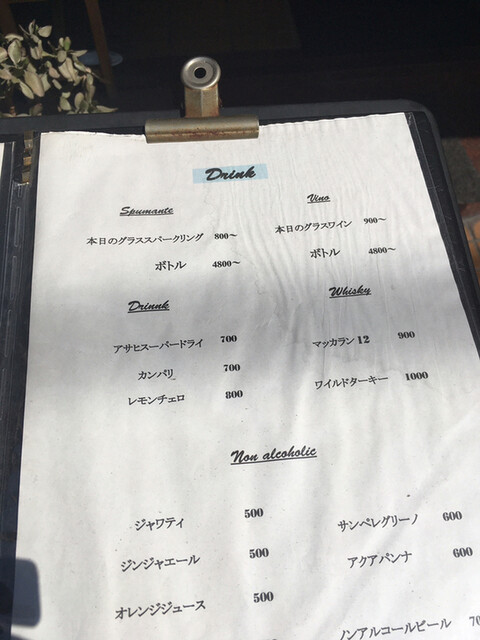 Drink
Spumante
本日のグラススパークリング 800〜
ボトル 4800〜
Vino
本日のグラスワイン 900〜
ボトル 4800〜
Drinnk
アサヒスーパードライ 700
カンパリ 700
レモンチェロ 800
Whisky
マッカラン 12 900
ワイルドターキー 1000
Non alcoholic
ジャワティ 500
ジンジャエール 500
オレンジジュース 500
サンペレグリーノ 600
アクアパンナ 600
ノンアルコールビール